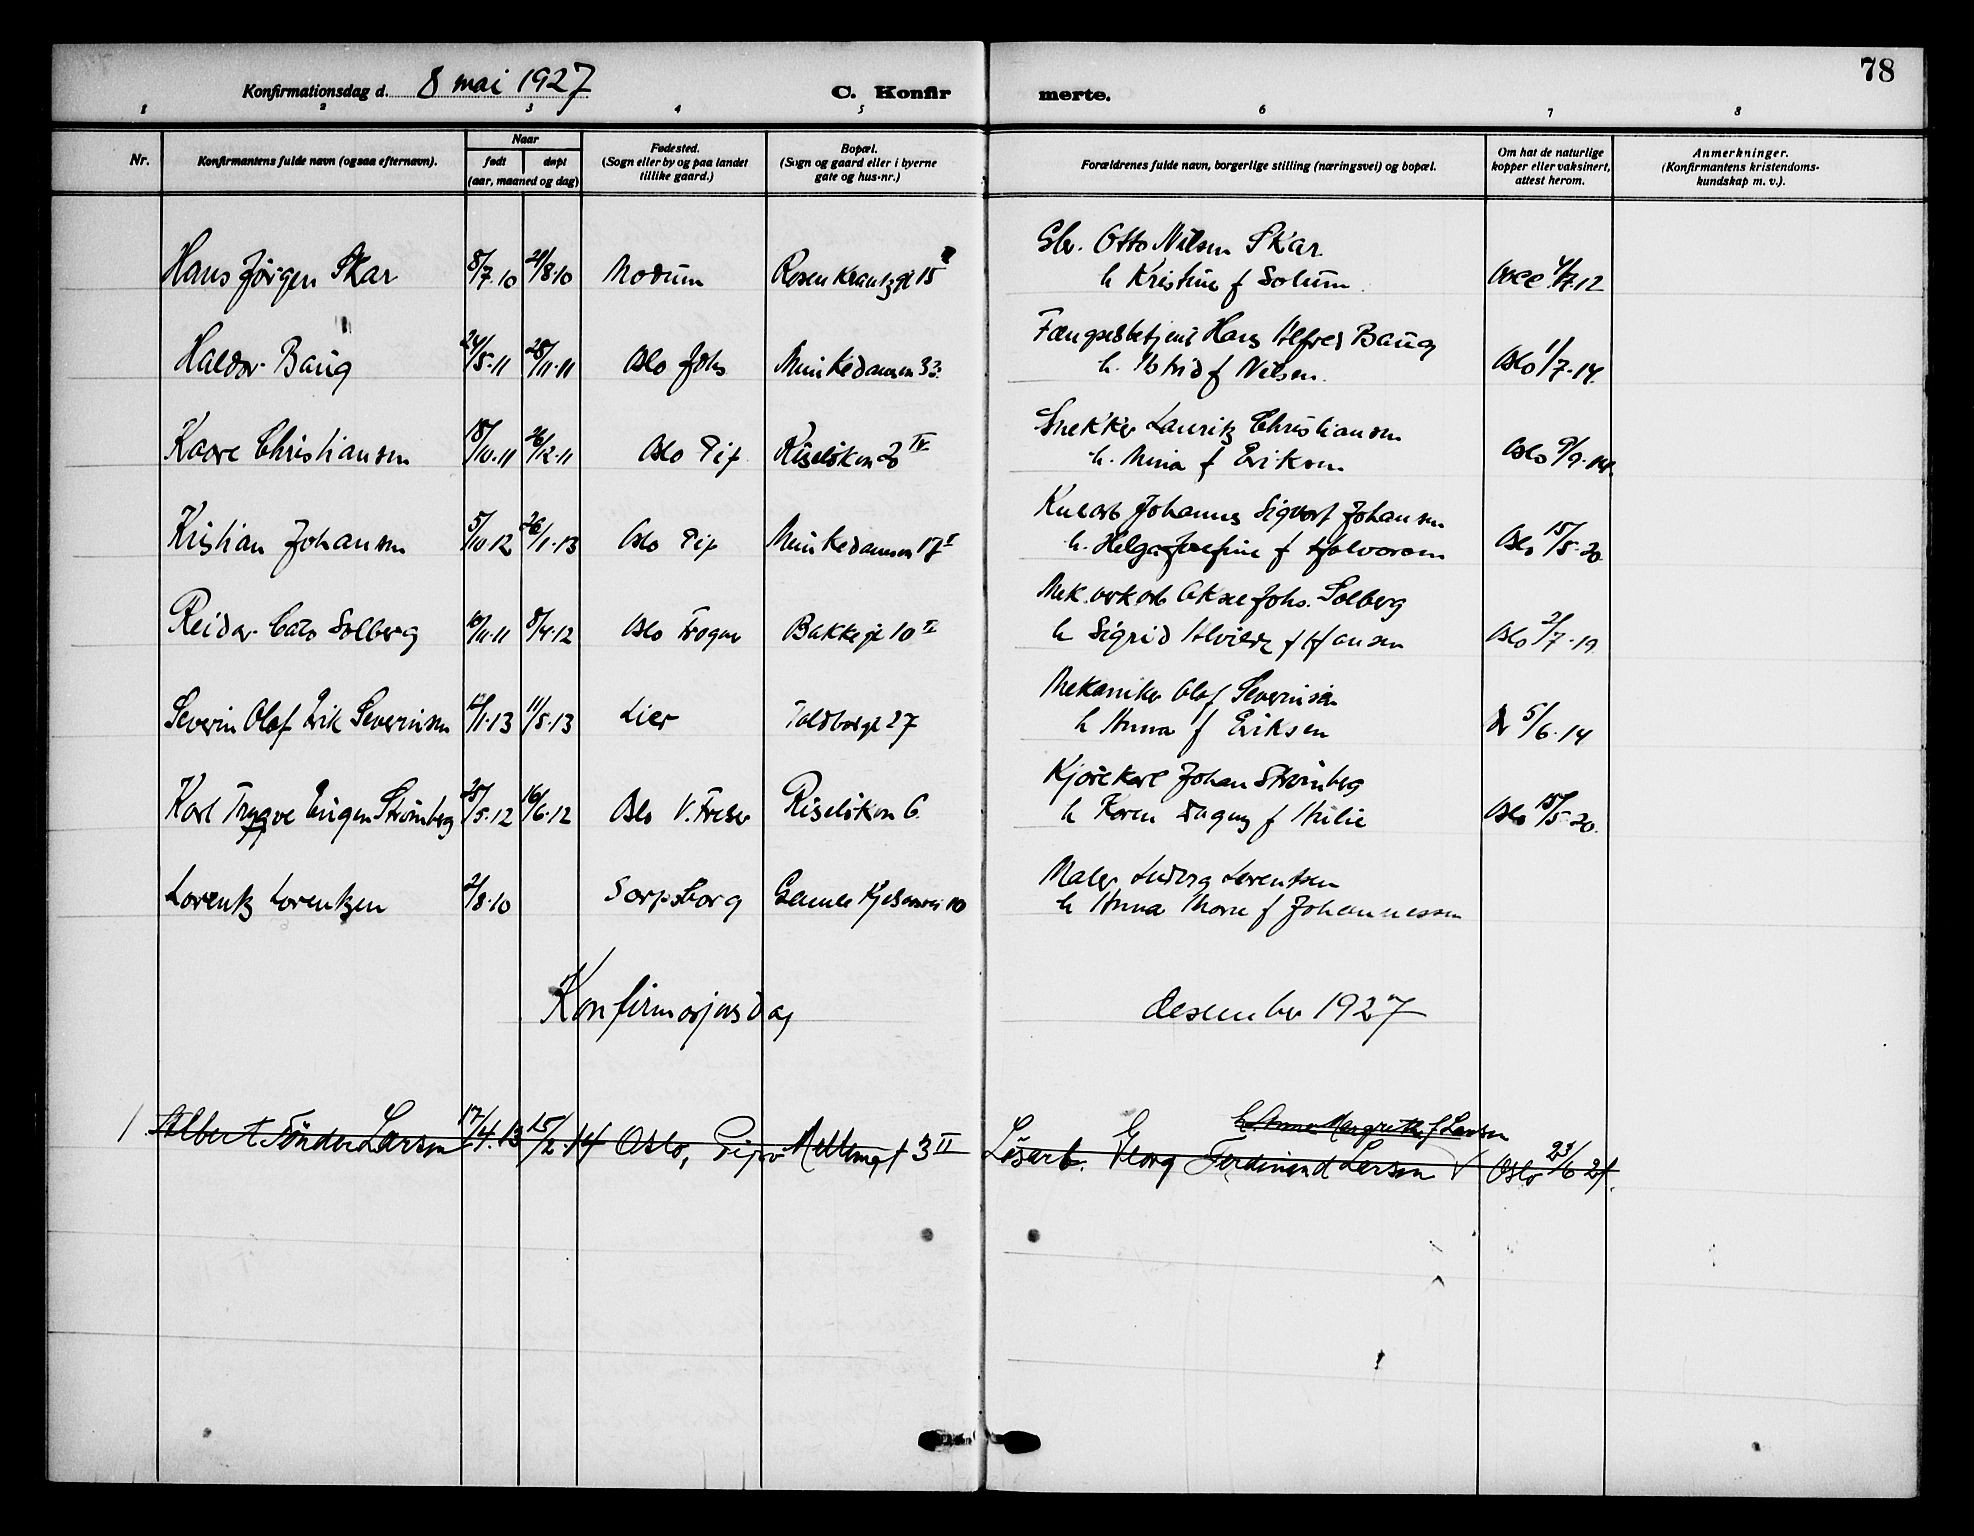 78
Konfirmationsdag d. 8 mai 1927 C. Konfir merte.
1 2 3 4 5 6 7 8
Nr. Konfirmantens fulde navn (ogsaa efternavn). Naar født døpt (aar, maaned og dag) Fødested. (Sogn eller by og paa landet tillike gaard.) Bopæl. (Sogn og gaard eller i byerne gate og hus-nr.) Forældrenes fulde navn, borgerlige stilling (næringsvei) og bopæl. Om hat de naturlige kopper eller vaksinert, attest herom. Anmerkninger. (Konfirmantens kristendoms-kundskap m. v.).
Otto Nilsen Skar
Hans Jørgen Skar 8/7.10 21/8.10 Modum Rosenkrantzgt 15 h Kristine f Solum 7.12
Fængselsbetjent Hans Alfred Baug
Haldor Baug 24/5.11 28/11.11 Oslo Johs Munkedamsvn 33. h. Astrid f Nilsen. Oslo 1/7.14.
Snekker Lauritz Christiansen
Kaare Christiansen 18/10.11 26/12.11 Oslo Pip Ruseløkvn 20 IV h. Mina f Eriksen Oslo 9/9.14.
Johannes Sigvart Johansen
Kristian Johansen 5/10.12 26/1.13 Oslo Pip Munkedamsvn 17 I h. Helga Josefine f Halvorsen Oslo 15/5.20
Mek. verk arb Aksel Johs. Solberg
Reidar Cato Solberg 10/11.11 8/4.12 Oslo Frogner Bakkegt 10 II h Sigrid Alvilde f Hansen Oslo 2/7.19
Mekaniker Olaf Severinsen
Severin Olaf Erik Severinsen 12/1.13 11/5.13 Lier Toldbodgt 27 h Anna f Eriksen 5/6.14
Kjørekarl Johan Strømberg
Karl Trygve Eugen Strømberg 25/5.12 16/6.12 Oslo V. Frelser Ruseløkvn 6 h Karen Dagny f Oslo 15/5.20.
Maler Ludvig Lorentzen
Lorentz Lorentzen 2/8.10 Sarpsborg Gamle 10 h Anna Marie f Johannessen
Konfirmasjonsdag desember 1927
h. Anna Margrethe f Larsen
1 Albert Tønder Larsen 17/4.13 15/2.14 Oslo, Mellemgt 3 II Løsarb. Georg Ferdinand Larsen Oslo 23/6 21.